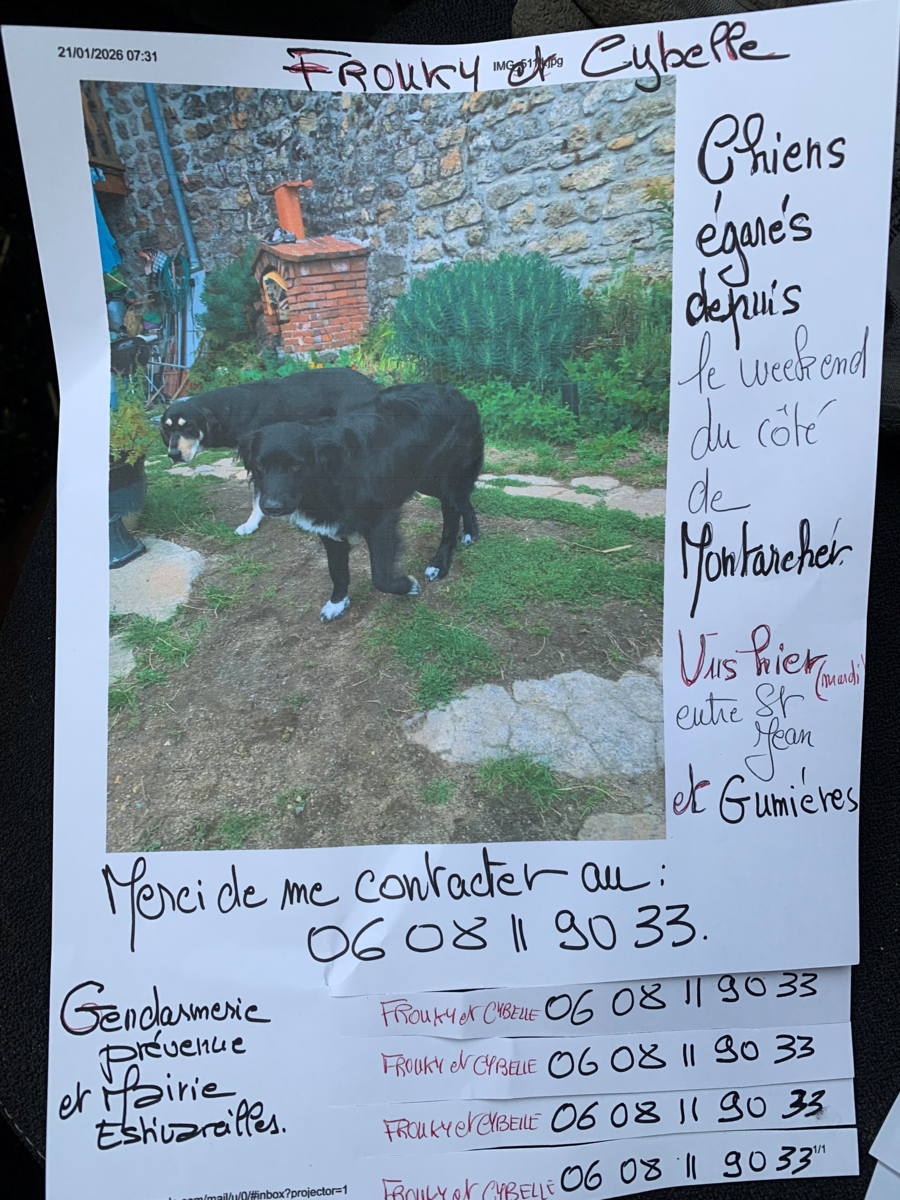 21/01/2026 07:31
Frouky et Cybelle
Chiens
égarés
depuis
le weekend
du côté
de
Montarcher.
Vus hier (mardi)
entre St
Jean
et Gumières
Merci de me contacter au :
06 08 11 90 33.
Gendarmerie
prévenue
et Mairie
Estivareilles.
FROUKY et CYBELLE 06 08 11 90 33
FROUKY et CYBELLE 06 08 11 90 33
FROUKY et CYBELLE 06 08 11 90 33
FROUKY et CYBELLE 06 08 11 90 33
1/1
.com/mail/u/0/#inbox?projector=1